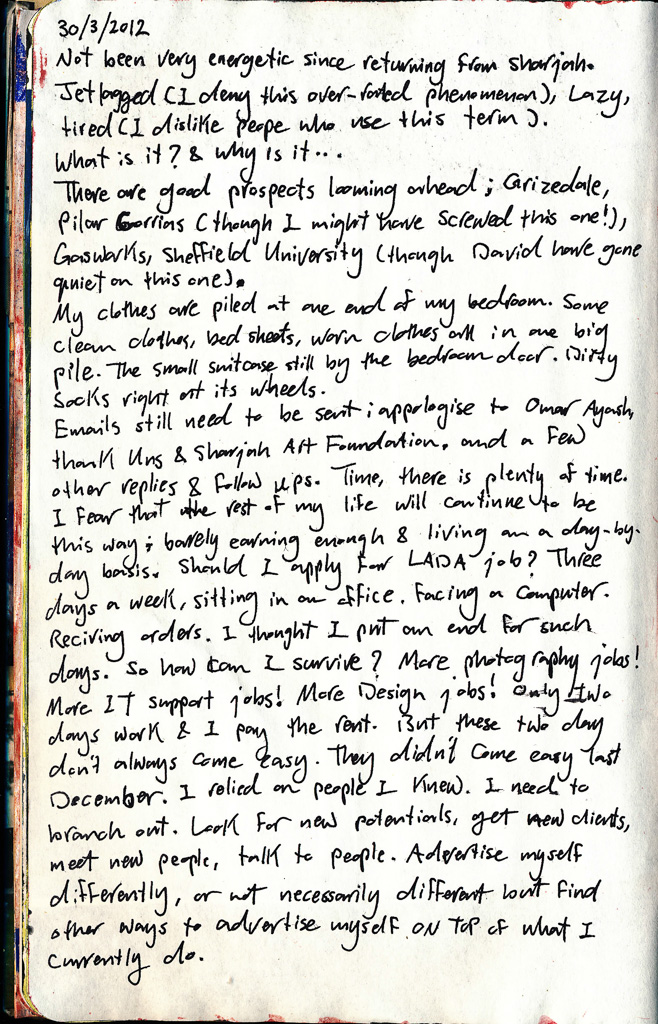 30/3/2012
Not been very energetic since returning from Sharjah.
Jetlagged (I deny this over-rated phenomenon), Lazy,
tired (I dislike peope who use this term).
What is it? & why is it...
There are good prospects looming ahead; Grizedale,
Pilar Corrias (though I might have screwed this one!),
Gasworks, Sheffield University (though David have gone
quiet on this one).
My clothes are piled at one end of my bedroom. Some
clean clothes, bed sheets, worn clothes all in one big
pile. The small suitcase still by the bedroom door. Dirty
Socks right at its wheels.
Emails still need to be sent; appologise to Omar Ayash,
thank Uns & Sharjah Art Foundation, and a few
other replies & follow ups. Time, there is plenty of time.
I fear that the rest of my life will continue to be
this way; barely earning enough & living on a day-by-
day basis. Should I apply for LADA job? Three
days a week, sitting in an office. Facing a computer.
Reciving orders. I thought I put an end for such
days. So how can I survive? More photography jobs!
More IT support jobs! More Design jobs! Only two
days work & I pay the rent. But these two day
don't always come easy. They didn't come easy last
December. I relied on people I knew. I need to
branch out. Look for new potentials, get new clients,
meet new people, talk to people. Advertise myself
differently, or not necessarily different but find
other ways to advertise myself ON TOP of what I
currently do.